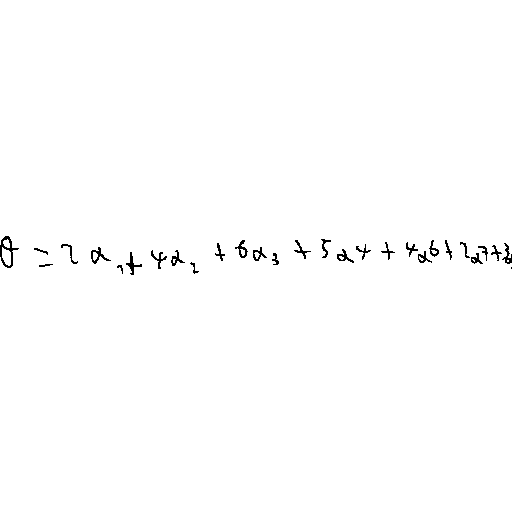 θ = 2α₁ + 4α₂ + 6α₃ + 5α4 + 4α6 + 2α7 + 3α